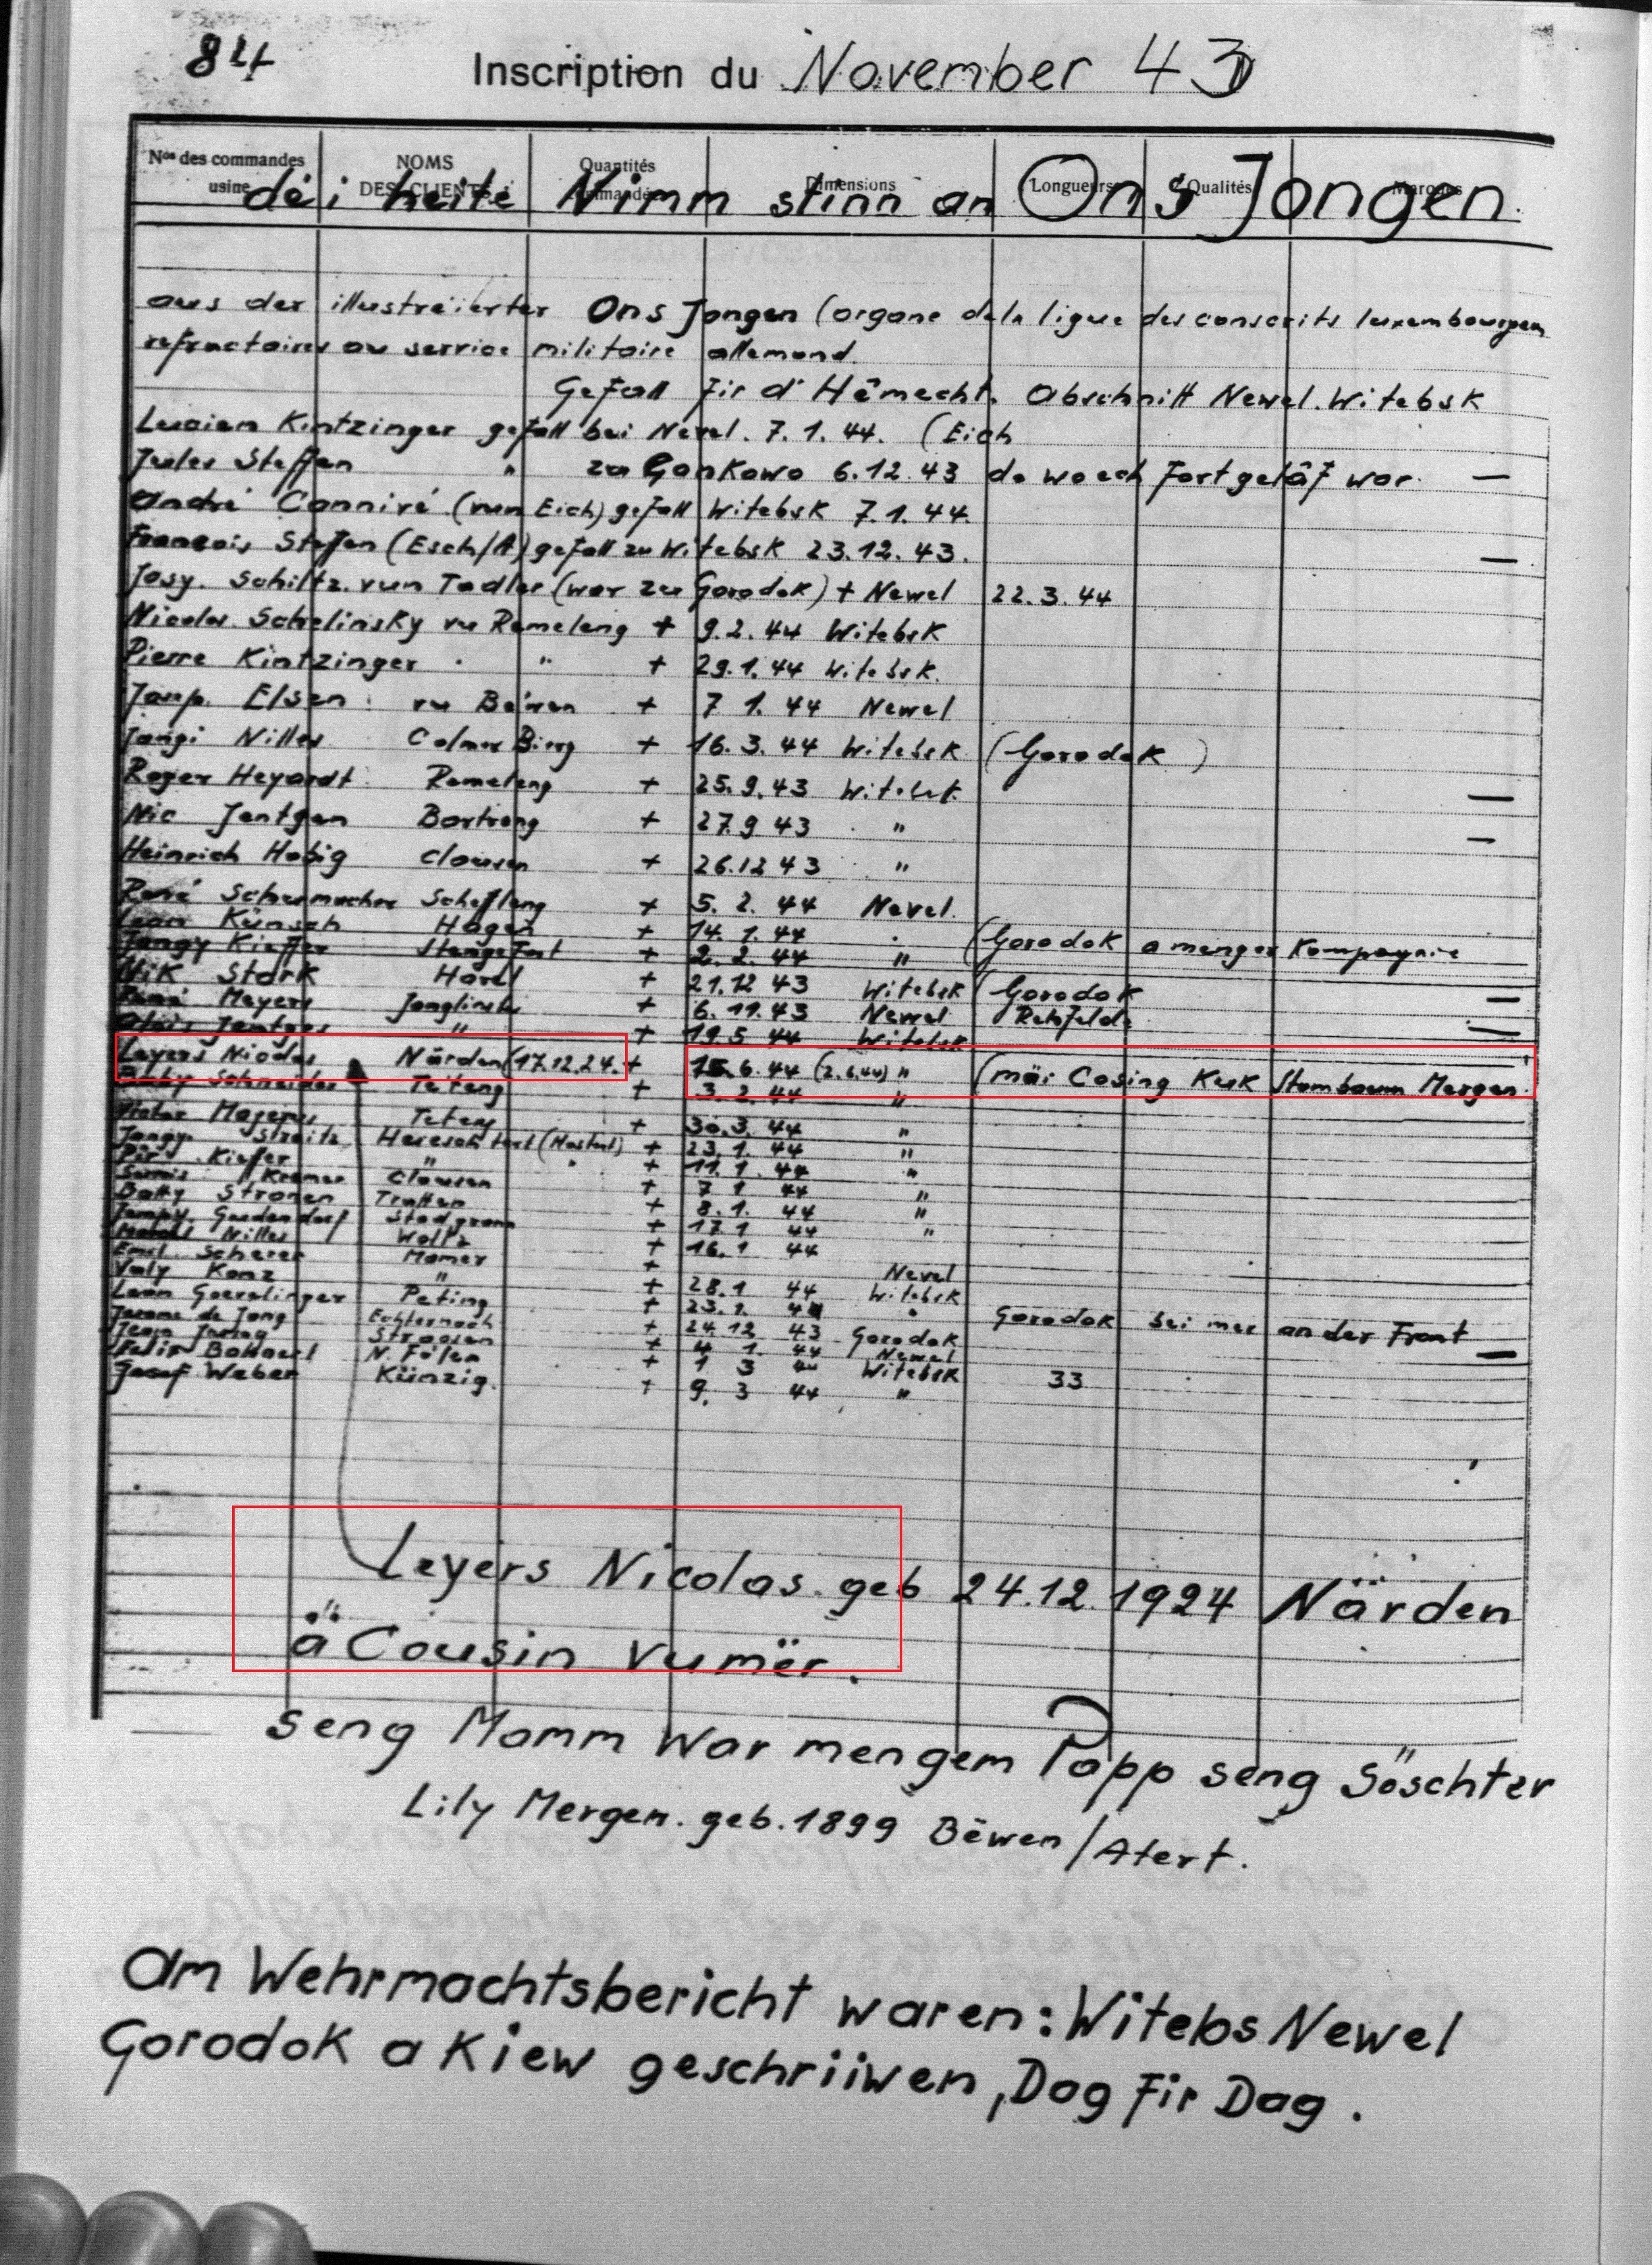 84
Inscription du November 43
Nos des commandes usine NOMS DES CLIENTS Quantités commandées Dimensions Longueurs Qualités Marques
déi heite Nimm stinn an Ons Jongen.
aus der illustréierter Ons Jongen (organe de la ligue des conscrits luxembourgeois
refractaires au service militaire allemand.
Gefall fir d'Hêmecht. Abschnitt Newel. Witebsk
Lucien Kintzinger gefall bei Nevel. 7.1.44. (Eich
Jules Steffen " zu Gankowo 6.12.43 do wo ech fortgelâf war. —
André Canniré (vun Eich) gefall Witebsk 7.1.44.
Francois Steffen (Esch/A) gefall zu Witebsk 23.12.43. —
Josy. Schiltz. vun Tadler (war zu Gorodok) + Newel 22.3.44
Nicolas Schelinsky vu Remeleng + 9.2.44 Witebsk
Pierre Kintzinger " + 29.1.44 Witebsk.
Elsen vu + 7 1. 44 Newel
Jängi Nilles Colmer Bierg + 16.3.44 Witebsk (Gorodok)
Roger Heyardt Remeleng + 25.9.43 Witebsk —
Nic Jentgen Bartreng + 27.9 43 " —
Heinrich Hobig Clausen + 26.12 43 "
René Schumacher Schefleng + 5. 2. 44 Nevel.
Künsch Hagen + 14. 1. 44 "
Jängy Kieffer Stengefort + 2. 2. 44 " (Gorodok a menger Kompagnie
Nik Stark Harel + 21.12 43 Witebsk (Gorodok —
René Meyers Jonglinster + 6. 11. 43 Newel —
Jentges " + 19 5 44 Witebsk
Leyers Nicolas Närden (17.12.24. + 15.6.44 (2.6.44) " (mäi Cosing Kuk Stambaum Mergen.
Schneider Teiteng + 3. 2. 44 "
Victor Majerus Teteng + 30.3. 44 "
Jängy Streitz (Mostert) + 23. 1. 44 "
Kiefer " + 11. 1. 44 "
Kremer Clausen + 7 1 44 "
Batty Stronen + 8. 1. 44 "
Stadgronn + 17.1 44 "
Nilles Woltz + 16. 1 44
Emil Scherer Mamer +  Nevel
Valy Konz " + 28.1 44 Witebsk
Léon Peting + 23. 1. 44 "
de Jong Echternach + 24.12 43 Gorodok Gorodok bei mer an der Front
Jean Stroossen + 4 1. 44 Newel —
Felix N. Fëlen + 1 3 44 Witebsk
Josef Weber Künzig. + 9. 3 44 " 33
Leyers Nicolas. geb 24.12.1924 Närden
ä Cousin vu mër.
seng Mamm war mengem Papp seng Söschter
Lily Mergen. geb. 1899 Bëwen/Atert.
am Wehrmachtsbericht waren: Witebs Newel
Gorodok a Kiew geschriiwen, Dag fir Dag.